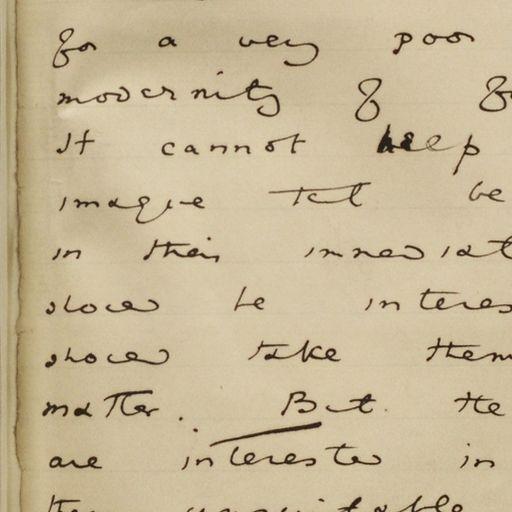 for a very poor
modernity of
It cannot help
imagine that be
in their immediat
should be interes
should take them
matter. But the
are interested in
them unsuitable